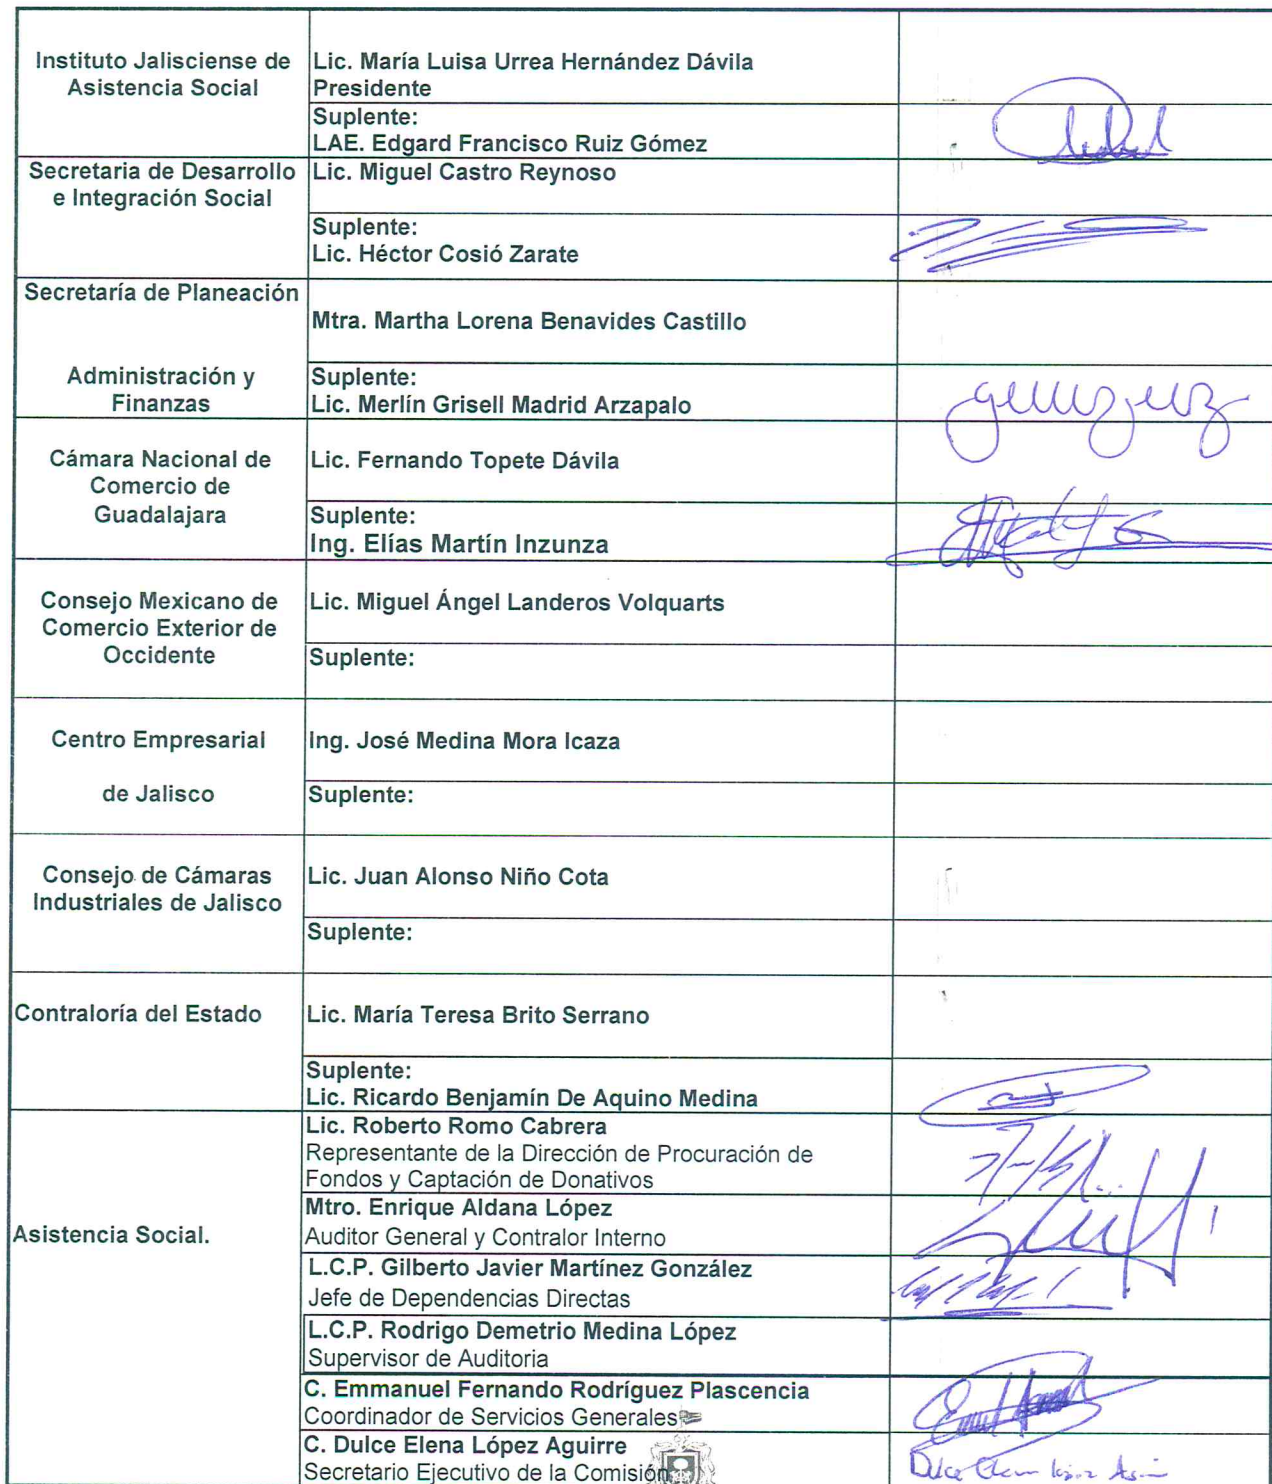 Instituto Jalisciense de
Asistencia Social
Lic. María Luisa Urrea Hernández Dávila
Presidente
Suplente:
LAE. Edgard Francisco Ruiz Gómez
Secretaria de Desarrollo
e Integración Social
Lic. Miguel Castro Reynoso
Suplente:
Lic. Héctor Cosió Zarate
Secretaría de Planeación
Administración y
Finanzas
Mtra. Martha Lorena Benavides Castillo
Suplente:
Lic. Merlín Grisell Madrid Arzapalo
Cámara Nacional de
Comercio de
Guadalajara
Lic. Fernando Topete Dávila
Suplente:
Ing. Elías Martín Inzunza
Consejo Mexicano de
Comercio Exterior de
Occidente
Lic. Miguel Ángel Landeros Volquarts
Suplente:
Centro Empresarial
de Jalisco
Ing. José Medina Mora Icaza
Suplente:
Consejo de Cámaras
Industriales de Jalisco
Lic. Juan Alonso Niño Cota
Suplente:
Contraloría del Estado
Lic. María Teresa Brito Serrano
Suplente:
Lic. Ricardo Benjamín De Aquino Medina
Asistencia Social.
Lic. Roberto Romo Cabrera
Representante de la Dirección de Procuración de
Fondos y Captación de Donativos
Mtro. Enrique Aldana López
Auditor General y Contralor Interno
L.C.P. Gilberto Javier Martínez González
Jefe de Dependencias Directas
L.C.P. Rodrigo Demetrio Medina López
Supervisor de Auditoria
C. Emmanuel Fernando Rodríguez Plascencia
Coordinador de Servicios Generales
C. Dulce Elena López Aguirre
Secretario Ejecutivo de la Comisión
Dulce Elena López